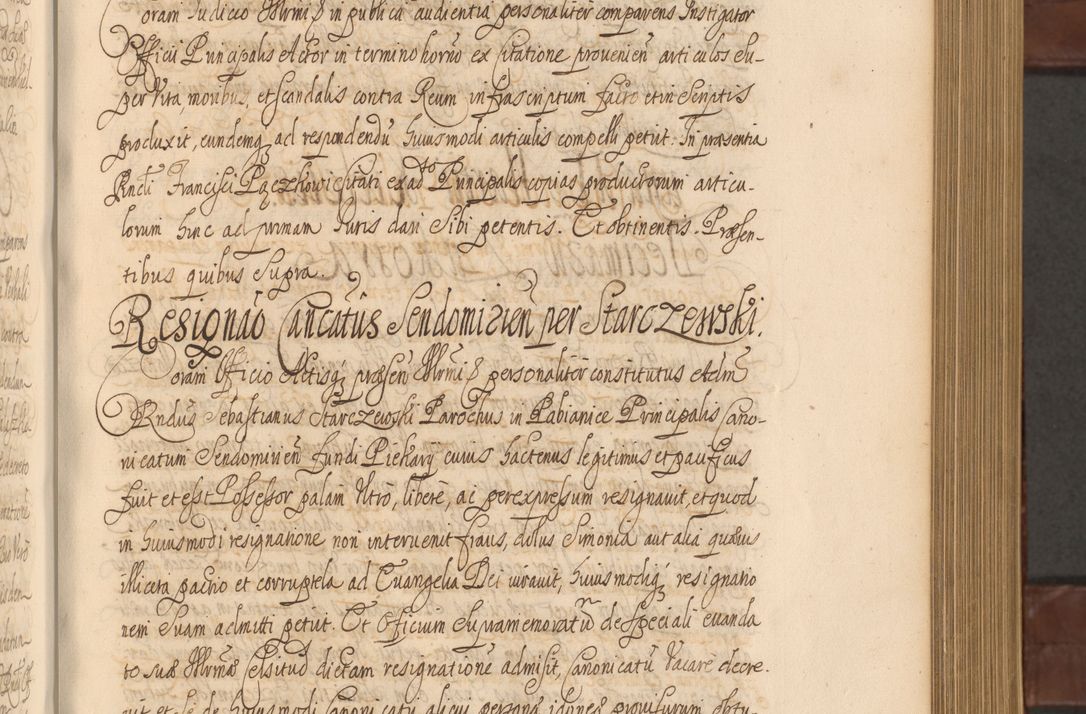 Coram Judicio Illrmi S in publica audientia personaliter comparens Instigator
Officii Principalis Actor in termino horno ex citatione provenien articulos su-
per Vita, moribus, et scandalis contra Reum infrascriptum facto et in Scriptis
produxit, eundemq ad respondendũ huiusmodi articulis compelli petiit. In præsentia
Rndi Francisci Pączkowi citati ex ad Principalis copias productorum articu-
lorum hinc ad primam Iuris dari Sibi petentis. Et obtinentis. Præsen-
tibus quibus supra.
Resignaõ Cancatũs Sendomirien per Starczewski.
Coram Officio Actisq præsen Illrmi S personaliter constitutus Adm
Rndus Sebastianus Starczewski Parochus in Pabianice Principalis Cano-
nicatum Sendomirien fundi Piekary cuius hactenus legitimus et pacificus
fuit et est Possessor palam Vtrò, liberè, ac per expressum resignauit, et quod
in huiusmodi resignatione non interuenit fraus, dolus Simonia aut alia quævis
illicita pactio et corruptela ad Euangelia Dei iurauit, huiusmodiq resignatio
nem Suam admitti petiit. Et Officium Supramemoratũ de speciali manda
to suæ Illrmæ Celsitud dictam resignationẽ admisit, Canonicatũ Vacare decre-
uit et de huiusmodi Canonicatu alicui personæ idoneæ prouisurum